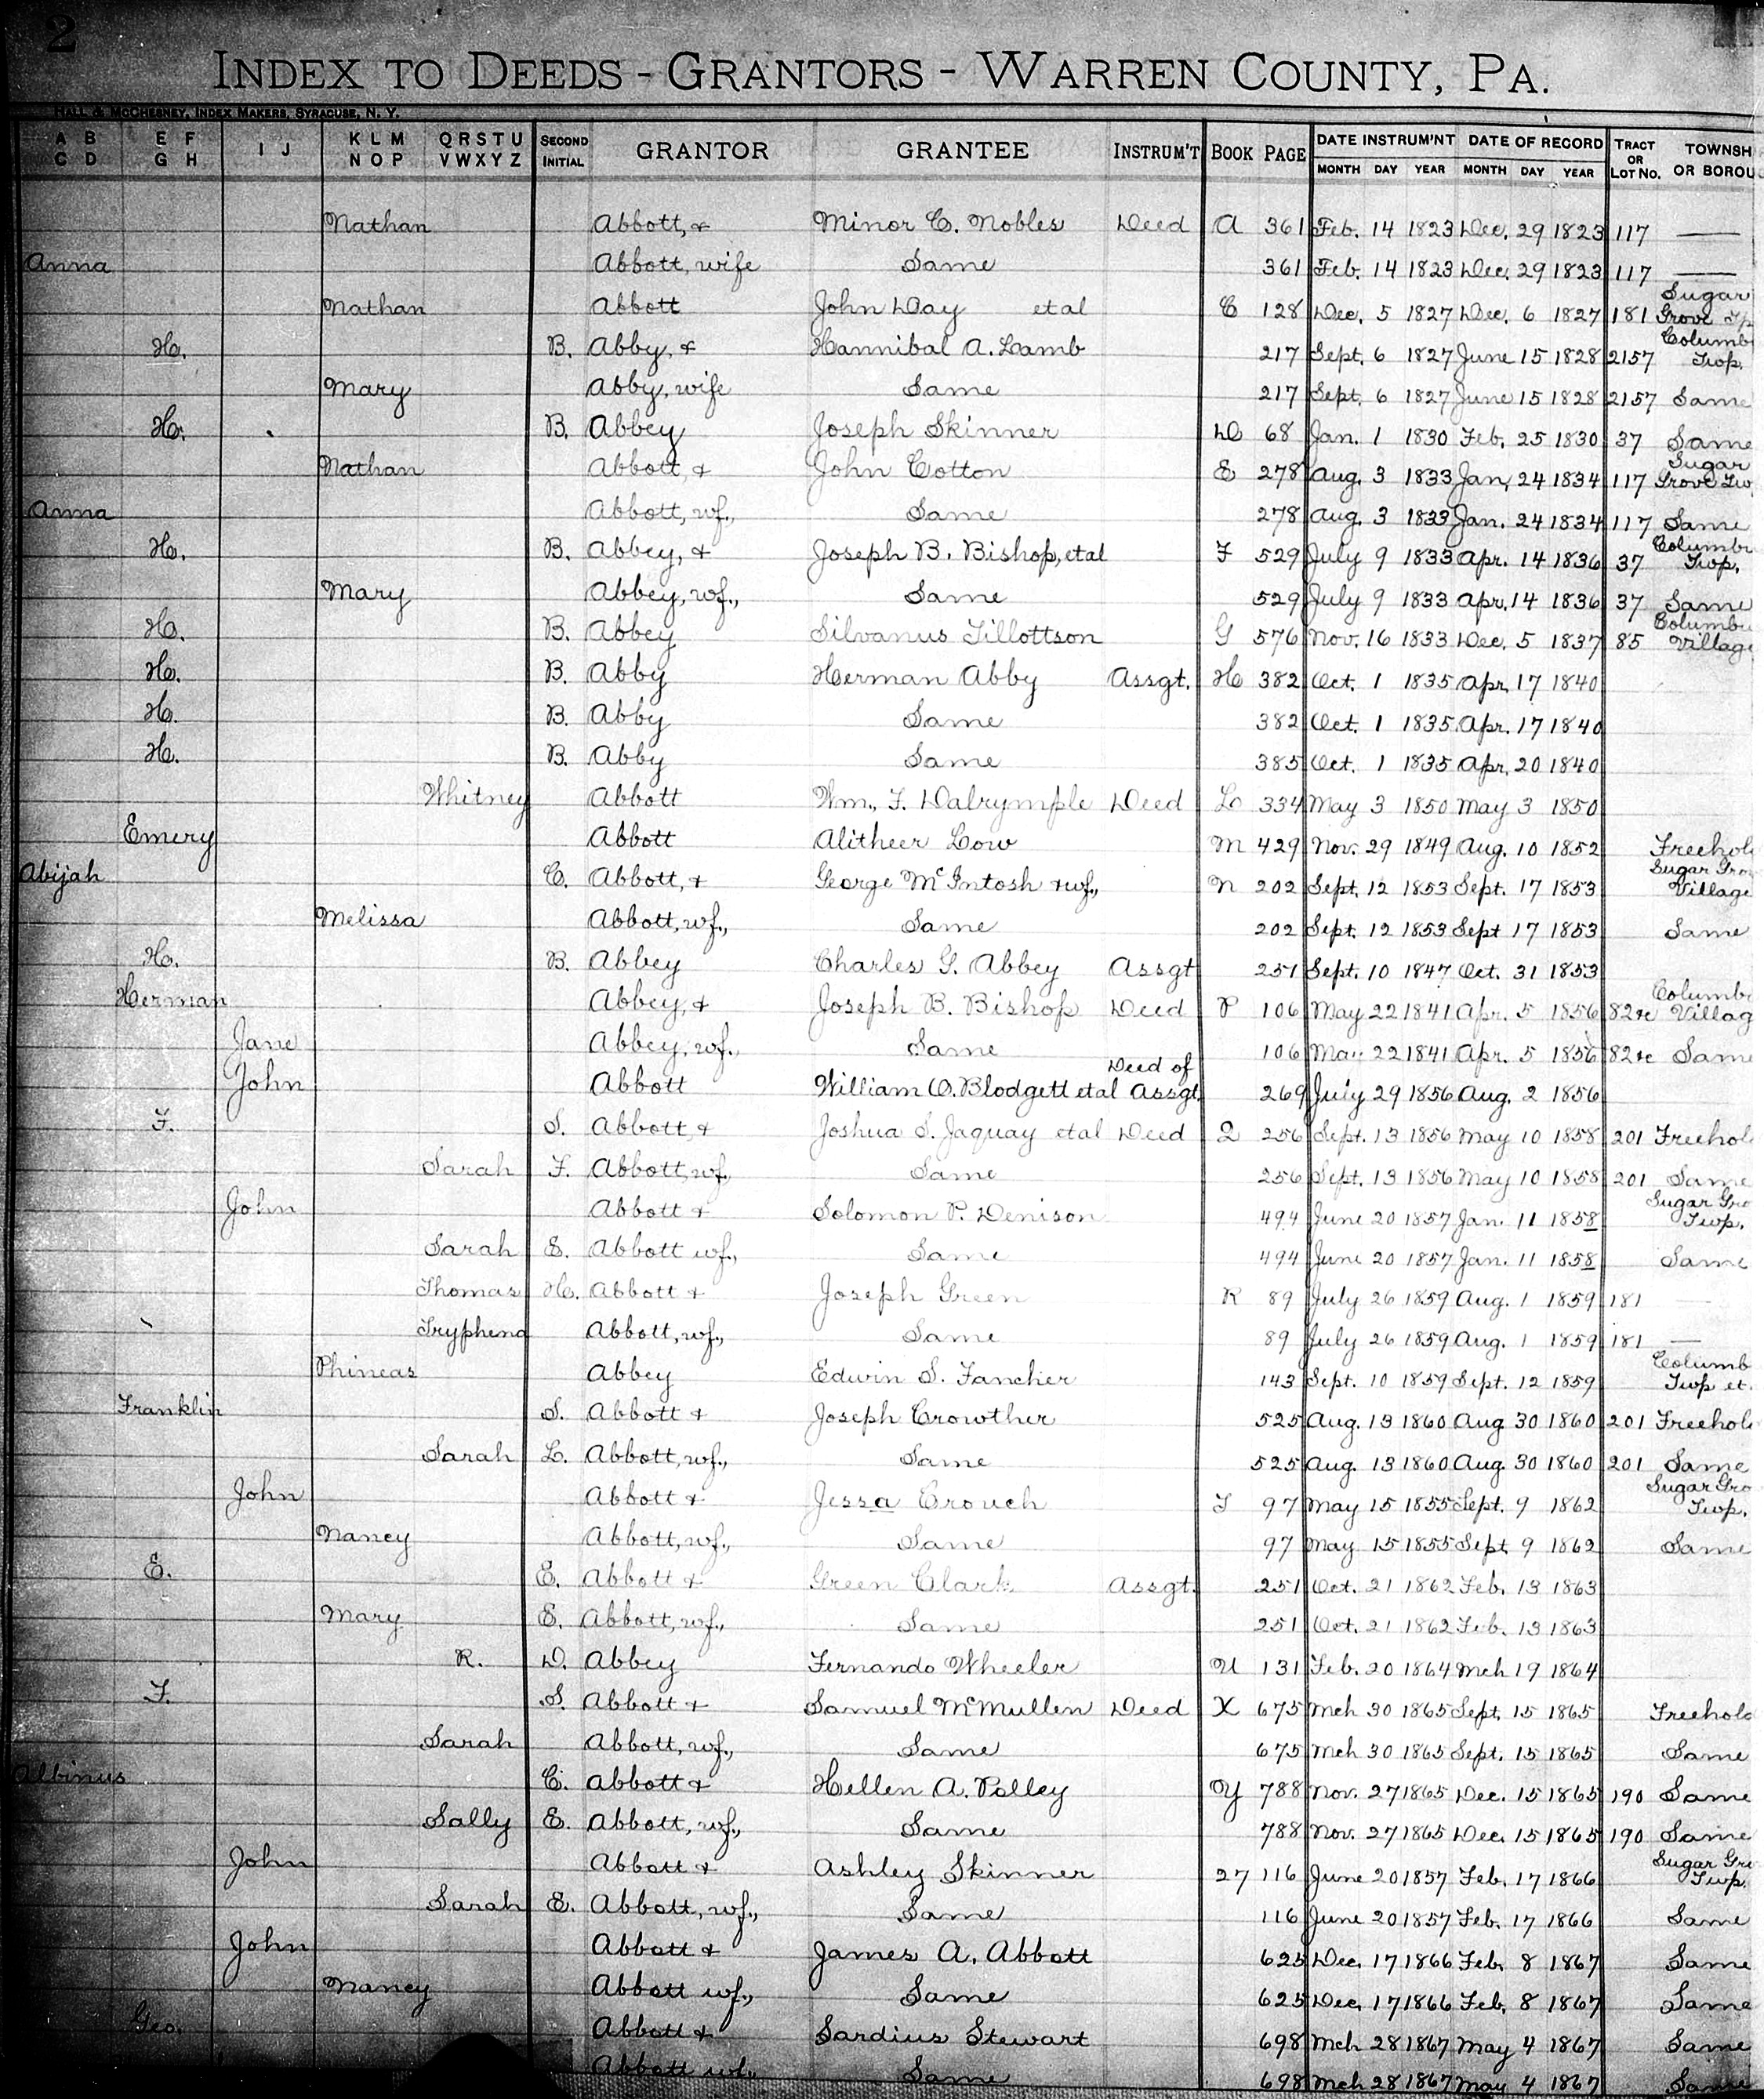 2
INDEX TO DEEDS - GRANTORS - WARREN COUNTY, PA.
HALL & McCHESNEY, INDEX MAKERS, SYRACUSE, N. Y.
A B C D E F G H I J K L M N O P Q R S T U V W X Y Z SECOND INITIAL GRANTOR GRANTEE INSTRUM'T BOOK PAGE DATE INSTRUM'NT MONTH DAY YEAR DATE OF RECORD MONTH DAY YEAR TRACT OR LOT No. TOWNSH OR BOROU
Nathan Abbott, & Minor C. Nobles Deed A 361 Feb. 14 1823 Dec. 29 1823 117 —
Anna Abbott, wife Same 361 Feb. 14 1823 Dec. 29 1823 117 —
Nathan Abbott John Day etal C 128 Dec. 5 1827 Dec. 6 1827 181 Sugar Grove Tp
H. B. Abby, & Hannibal A. Lamb 217 Sept. 6 1827 June 15 1828 2157 Columb Twp.
Mary Abby, wife Same 217 Sept. 6 1827 June 15 1828 2157 Same
H. B. Abbey Joseph Skinner D 68 Jan. 1 1830 Feb. 25 1830 37 Same
Nathan Abbott, & John Cotton E 278 Aug. 3 1833 Jan. 24 1834 117 Sugar Grove Tw
Anna Abbott, wf., Same 278 Aug. 3 1833 Jan. 24 1834 117 Same
H. B. Abbey, & Joseph B. Bishop, etal F 529 July 9 1833 Apr. 14 1836 37 Columbu Twp.
Mary Abbey, wf., Same 529 July 9 1833 Apr. 14 1836 37 Same
H. B. Abbey Silvanus Tillottson G 576 Nov. 16 1833 Dec. 5 1837 85 Columbu Village
H. B. Abby Herman Abby Assgt. H 382 Oct. 1 1835 Apr. 17 1840
H. B. Abby Same 382 Oct. 1 1835 Apr. 17 1840
H. B. Abby Same 385 Oct. 1 1835 Apr. 20 1840
Whitney Abbott Wm., F. Dalrymple Deed L 334 May 3 1850 May 3 1850
Emery Abbott Alitheer Low M 429 Nov. 29 1849 Aug. 10 1852 Freehol
Abijah C. Abbott, & George McIntosh & wf., N 202 Sept. 12 1853 Sept. 17 1853 Sugar Gro Village
Melissa Abbott, wf., Same 202 Sept. 12 1853 Sept 17 1853 Same
H. B. Abbey Charles G. Abbey Assgt 251 Sept. 10 1847 Oct. 31 1853
Herman Abbey, & Joseph B. Bishop Deed P 106 May 22 1841 Apr. 5 1856 82 &c Columb Villag
Jane Abbey, wf., Same 106 May 22 1841 Apr. 5 1856 82 &c Same
John Abbott William O. Blodgett etal Deed of Assgt. 269 July 29 1856 Aug. 2 1856
F. S. Abbott & Joshua S. Jaquay etal Deed Q 256 Sept. 13 1856 May 10 1858 201 Freehol
Sarah F. Abbott, wf., Same 256 Sept. 13 1856 May 10 1858 201 Same
John Abbott & Solomon P. Denison 494 June 20 1857 Jan. 11 1858 Sugar Gro Twp.
Sarah E. Abbott wf., Same 494 June 20 1857 Jan. 11 1858 Same
Thomas H. Abbott & Joseph Green R 89 July 26 1859 Aug. 1 1859 181 —
Tryphena Abbott, wf., Same 89 July 26 1859 Aug. 1 1859 181 —
Phineas Abbey Edwin S. Fancher 143 Sept. 10 1859 Sept. 12 1859 Columb Twp et.
Franklin S. Abbott & Joseph Crowther 525 Aug. 13 1860 Aug 30 1860 201 Freehol
Sarah L. Abbott, wf., Same 525 Aug. 13 1860 Aug. 30 1860 201 Same
John Abbott & Jessa Crouch T 97 May 15 1855 Sept. 9 1862 Sugar Gro Twp.
Nancy Abbott, wf., Same 97 May 15 1855 Sept. 9 1862 Same
E. E. Abbott & Green Clark Assgt. 251 Oct. 21 1862 Feb. 13 1863
Mary E. Abbott, wf., Same 251 Oct. 21 1862 Feb. 13 1863
R. D. Abbey Fernando Wheeler U 131 Feb. 20 1864 Mch 19 1864
F. S. Abbott & Samuel McMullen Deed X 675 Mch 30 1865 Sept. 15 1865 Freehold
Sarah Abbott, wf., Same 675 Mch 30 1865 Sept. 15 1865 Same
Albinus C. Abbott & Hellen A. Polley Y 788 Nov. 27 1865 Dec. 15 1865 190 Same
Sally E. Abbott, wf., Same 788 Nov. 27 1865 Dec. 15 1865 190 Same
John Abbott & Ashley Skinner 27 116 June 20 1857 Feb. 17 1866 Sugar Gro Twp.
Sarah E. Abbott, wf., Same 116 June 20 1857 Feb. 17 1866 Same
John Abbott & James A. Abbott 625 Dec. 17 1866 Feb. 8 1867 Same
Nancy Abbott wf., Same 625 Dec. 17 1866 Feb. 8 1867 Same
Geo. Abbott & Sardius Stewart 698 Mch 28 1867 May 4 1867 Same
Abbott wf., Same 698 Mch 28 1867 May 4 1867 Same